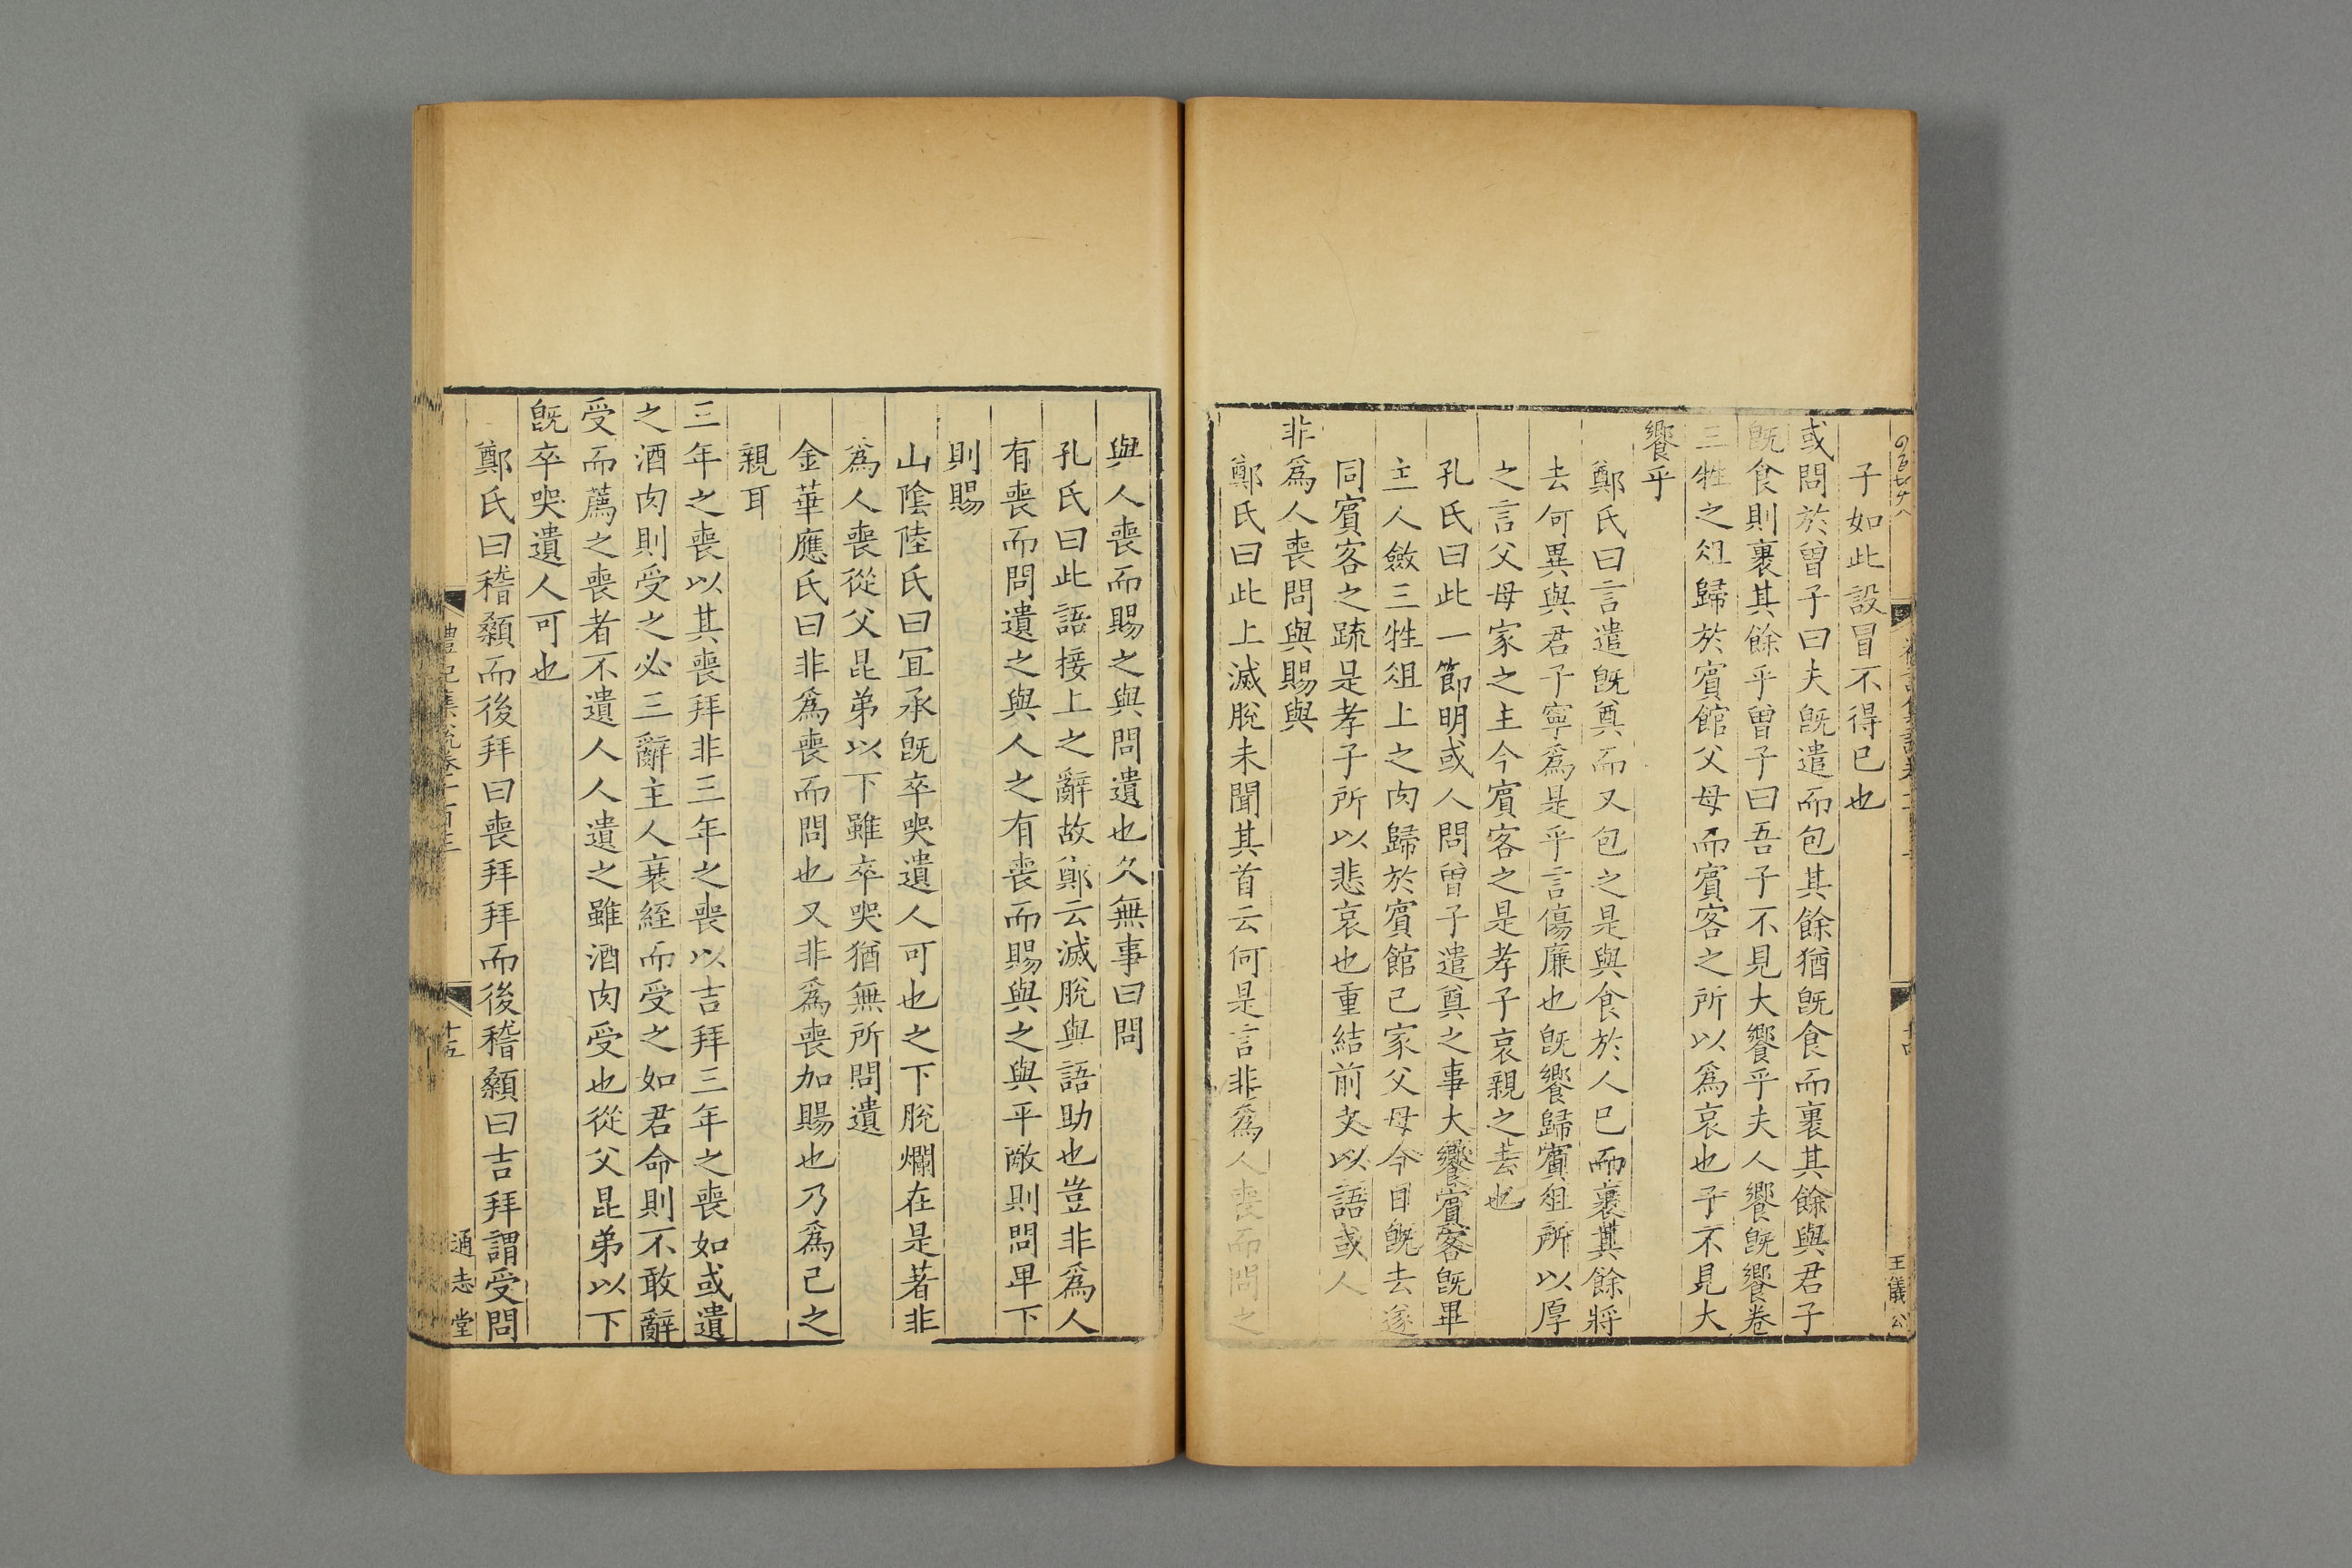 子如此設冒不得已也
或問於曾子曰夫旣遣而包其餘猶旣食而裹其餘與君子
旣食則裹其餘乎曾子曰吾子不見大饗乎夫人饗旣饗卷
三牲之俎歸於賓館父母而賓客之所以爲哀也子不見大
饗乎
鄭氏曰言遣旣奠而又包之是與食於人已而裹其餘將
去何異與君子寧爲是乎言傷廉也旣饗歸賓俎所以厚
之言父母家之主今賓客之是孝子哀親之去也
孔氏曰此一節明或人問曾子遣奠之事大饗賓客旣畢
主人斂三牲俎上之肉歸於賓館己家父母今日旣去遂
同賓客之疏是孝子所以悲哀也重結前文以語或人
非爲人喪問與賜與
鄭氏曰此上滅脫未聞其首云何是言非爲人喪而問之
與人喪而賜之與問遺也久無事曰問
孔氏曰此語接上之辭故鄭云滅脫與語助也豈非爲人
有喪而問遺之與人之有喪而賜與之與平敵則問卑下
則賜
山陰陸氏曰宜承旣卒哭遺人可也之下脫爛在是著非
爲人喪從父昆弟以下雖卒哭猶無所問遺
金華應氏曰非爲喪而問也又非爲喪加賜也乃爲己之
親耳
三年之喪以其喪拜非三年之喪以吉拜三年之喪如或遺
之酒肉則受之必三辭主人衰絰而受之如君命則不敢辭
受而薦之喪者不遺人人遺之雖酒肉受也從父昆弟以下
旣卒哭遺人可也
鄭氏曰稽顙而後拜曰喪拜拜而後稽顙曰吉拜謂受問
禮記集說卷一百三
十五
通志堂